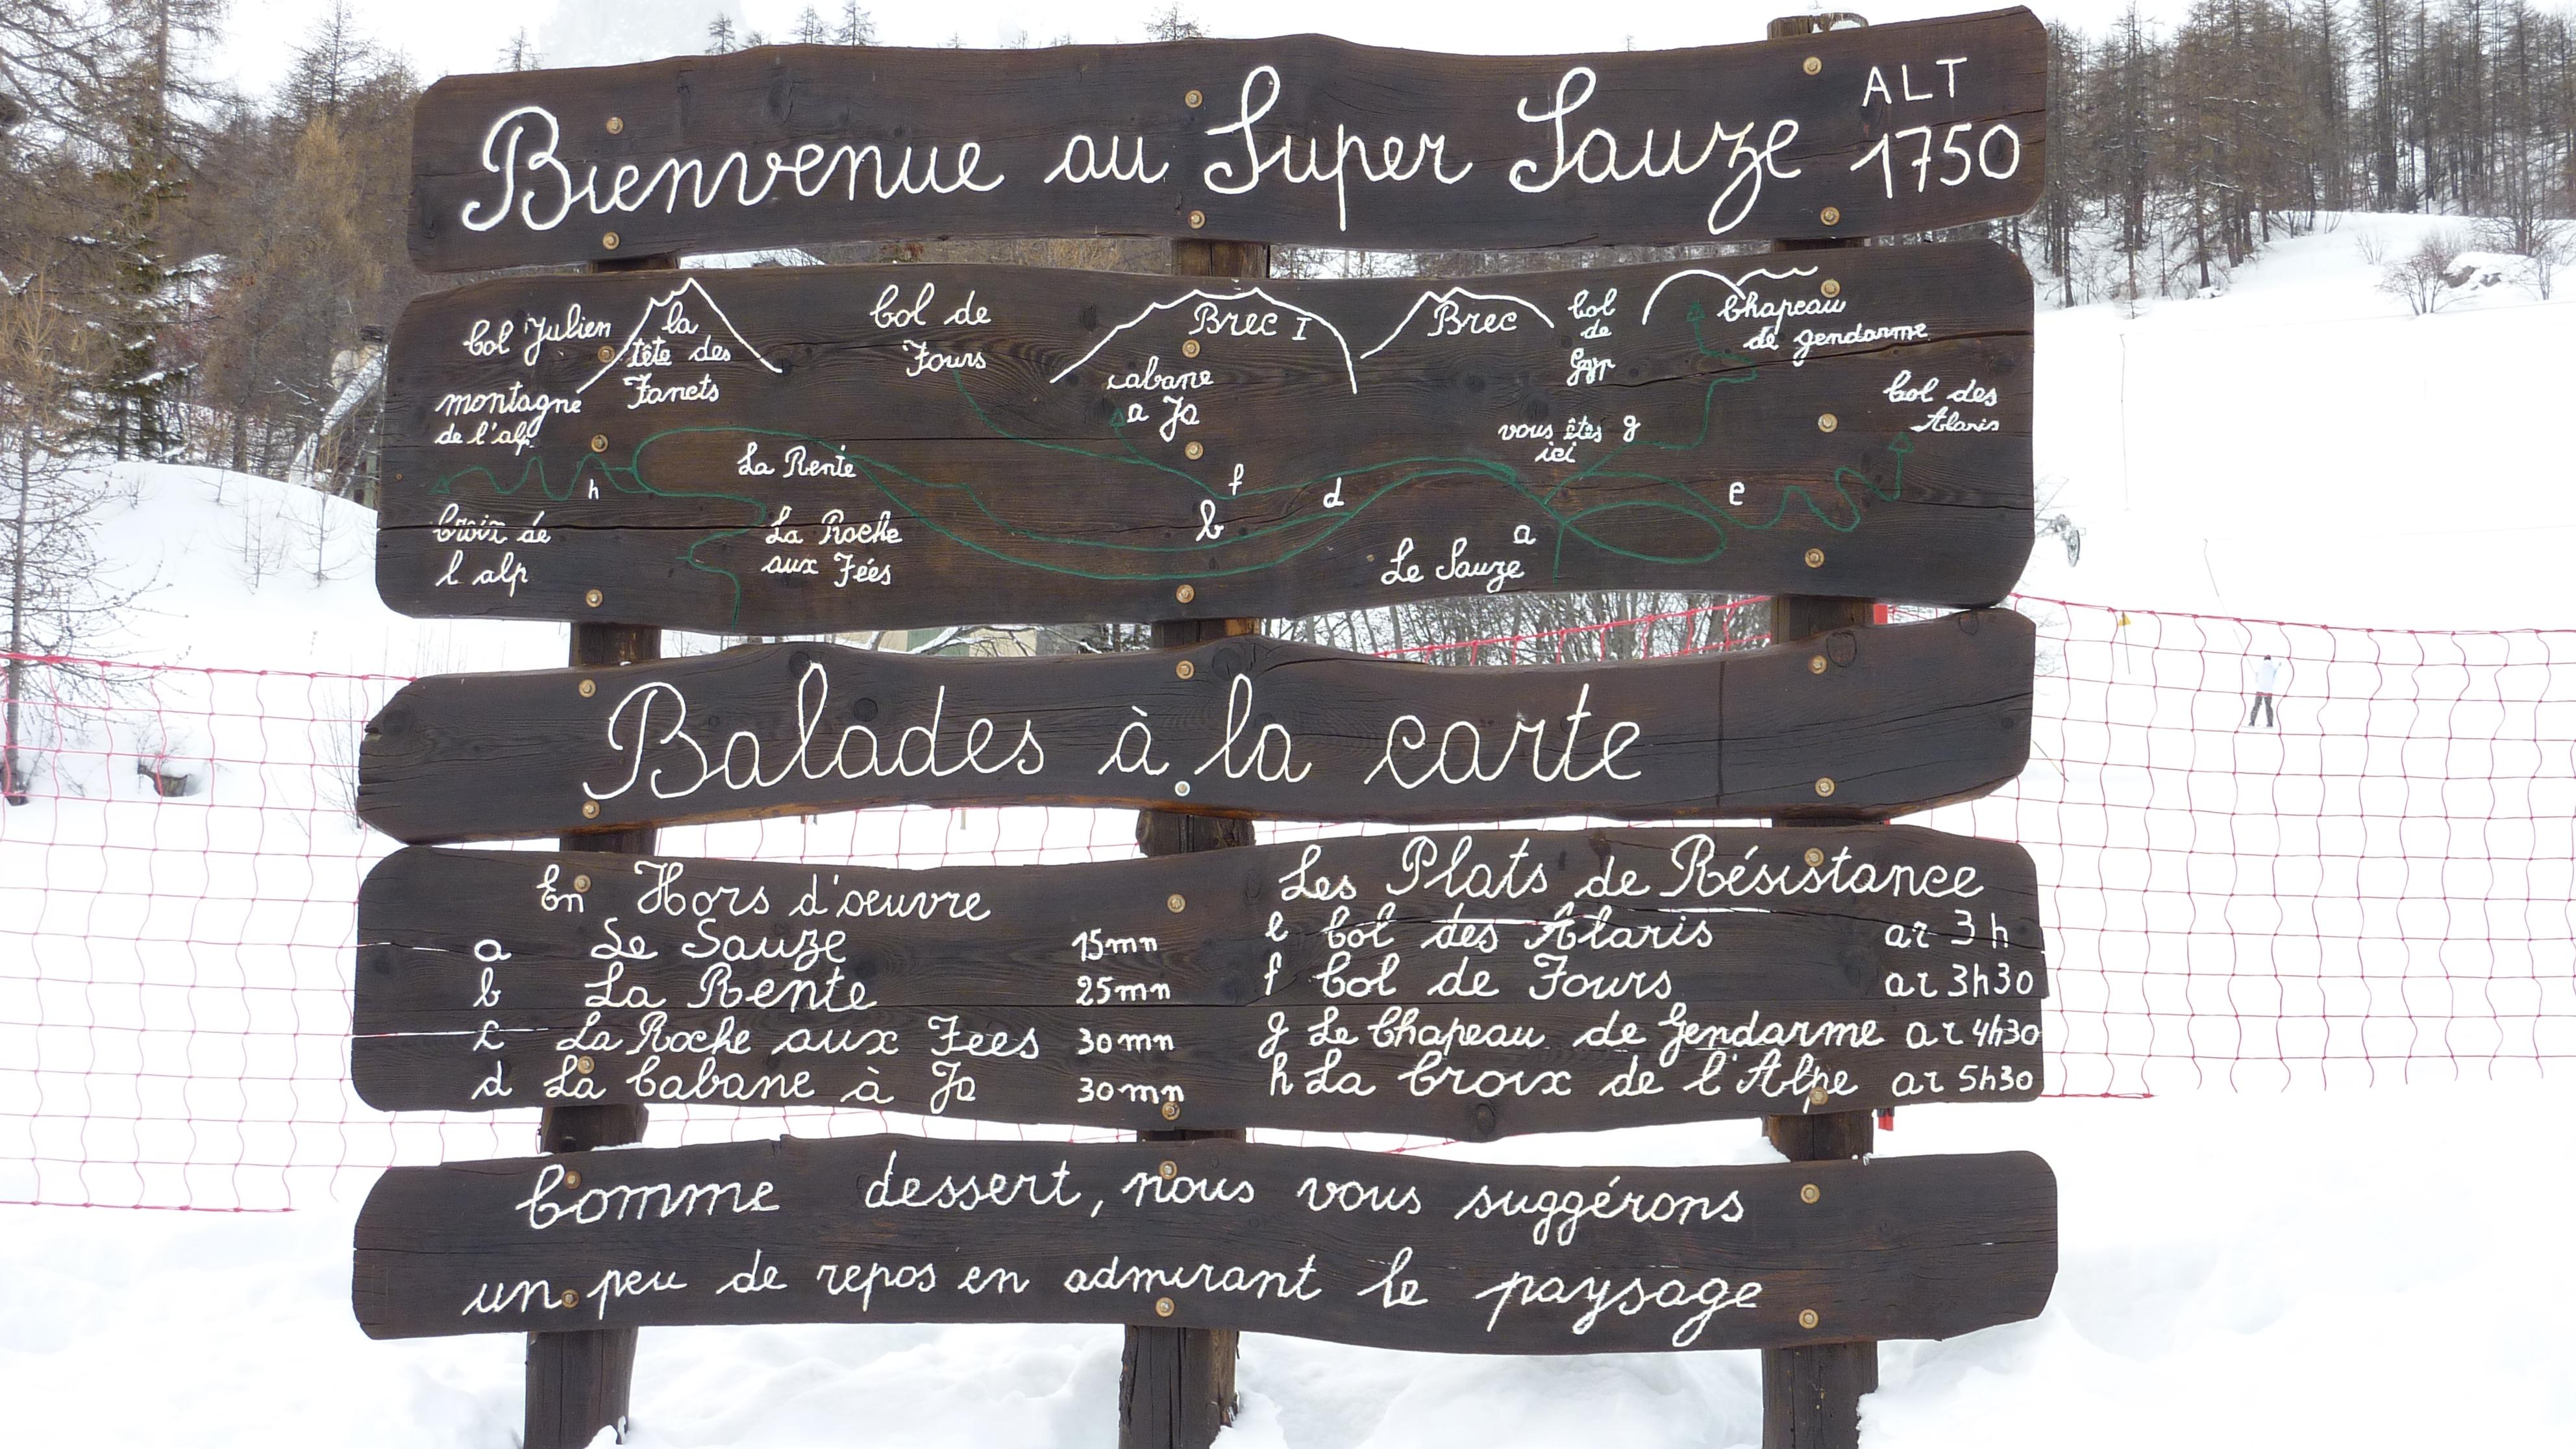 Bienvenue au Super Sauze
ALT
1750
Col Julien
la
tête des
Fanets
Col de
Fours
Brec I
Brec
Col
de
Gyp
Chapeau
de gendarme
montagne
de l'alp
cabane
a Jo
vous êtes
ici
g
Col des
Alaris
La Rente
h
f
d
e
b
Croix de
l alp
La Roche
aux Fées
a
Le Sauze
Balades à la carte
En Hors d'oeuvre
a Le Sauze 15mn
b La Rente 25mn
c La Roche aux Fees 30mn
d La Cabane à Jo 30mn
Les Plats de Résistance
e Col des Alaris ar 3h
f Col de Fours ar 3h30
g Le Chapeau de Gendarme ar 4h30
h La Croix de l'Alpe ar 5h30
Comme dessert, nous vous suggérons
un peu de repos en admirant le paysage